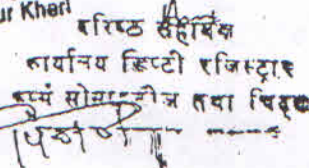 ur Kheri
वरिष्ठ सहायक
कार्यालय डिप्टी रजिस्ट्रार
सोसाइटीज तथा चिट्स